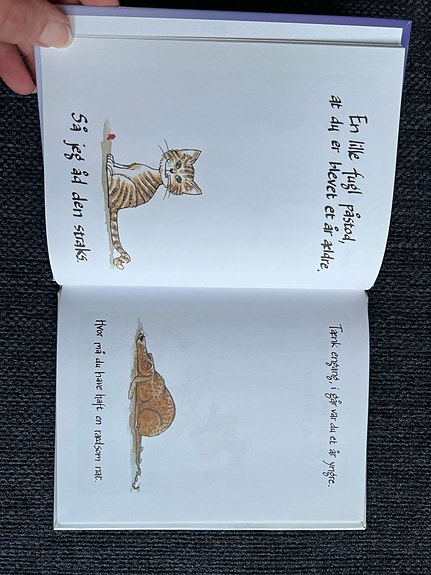 En lille fugl påstod,
at du er blevet et år ældre.
Så jeg åd den straks.
Tænk engang, i går var du et år yngre.
Hvor må du have haft en rædsom nat.